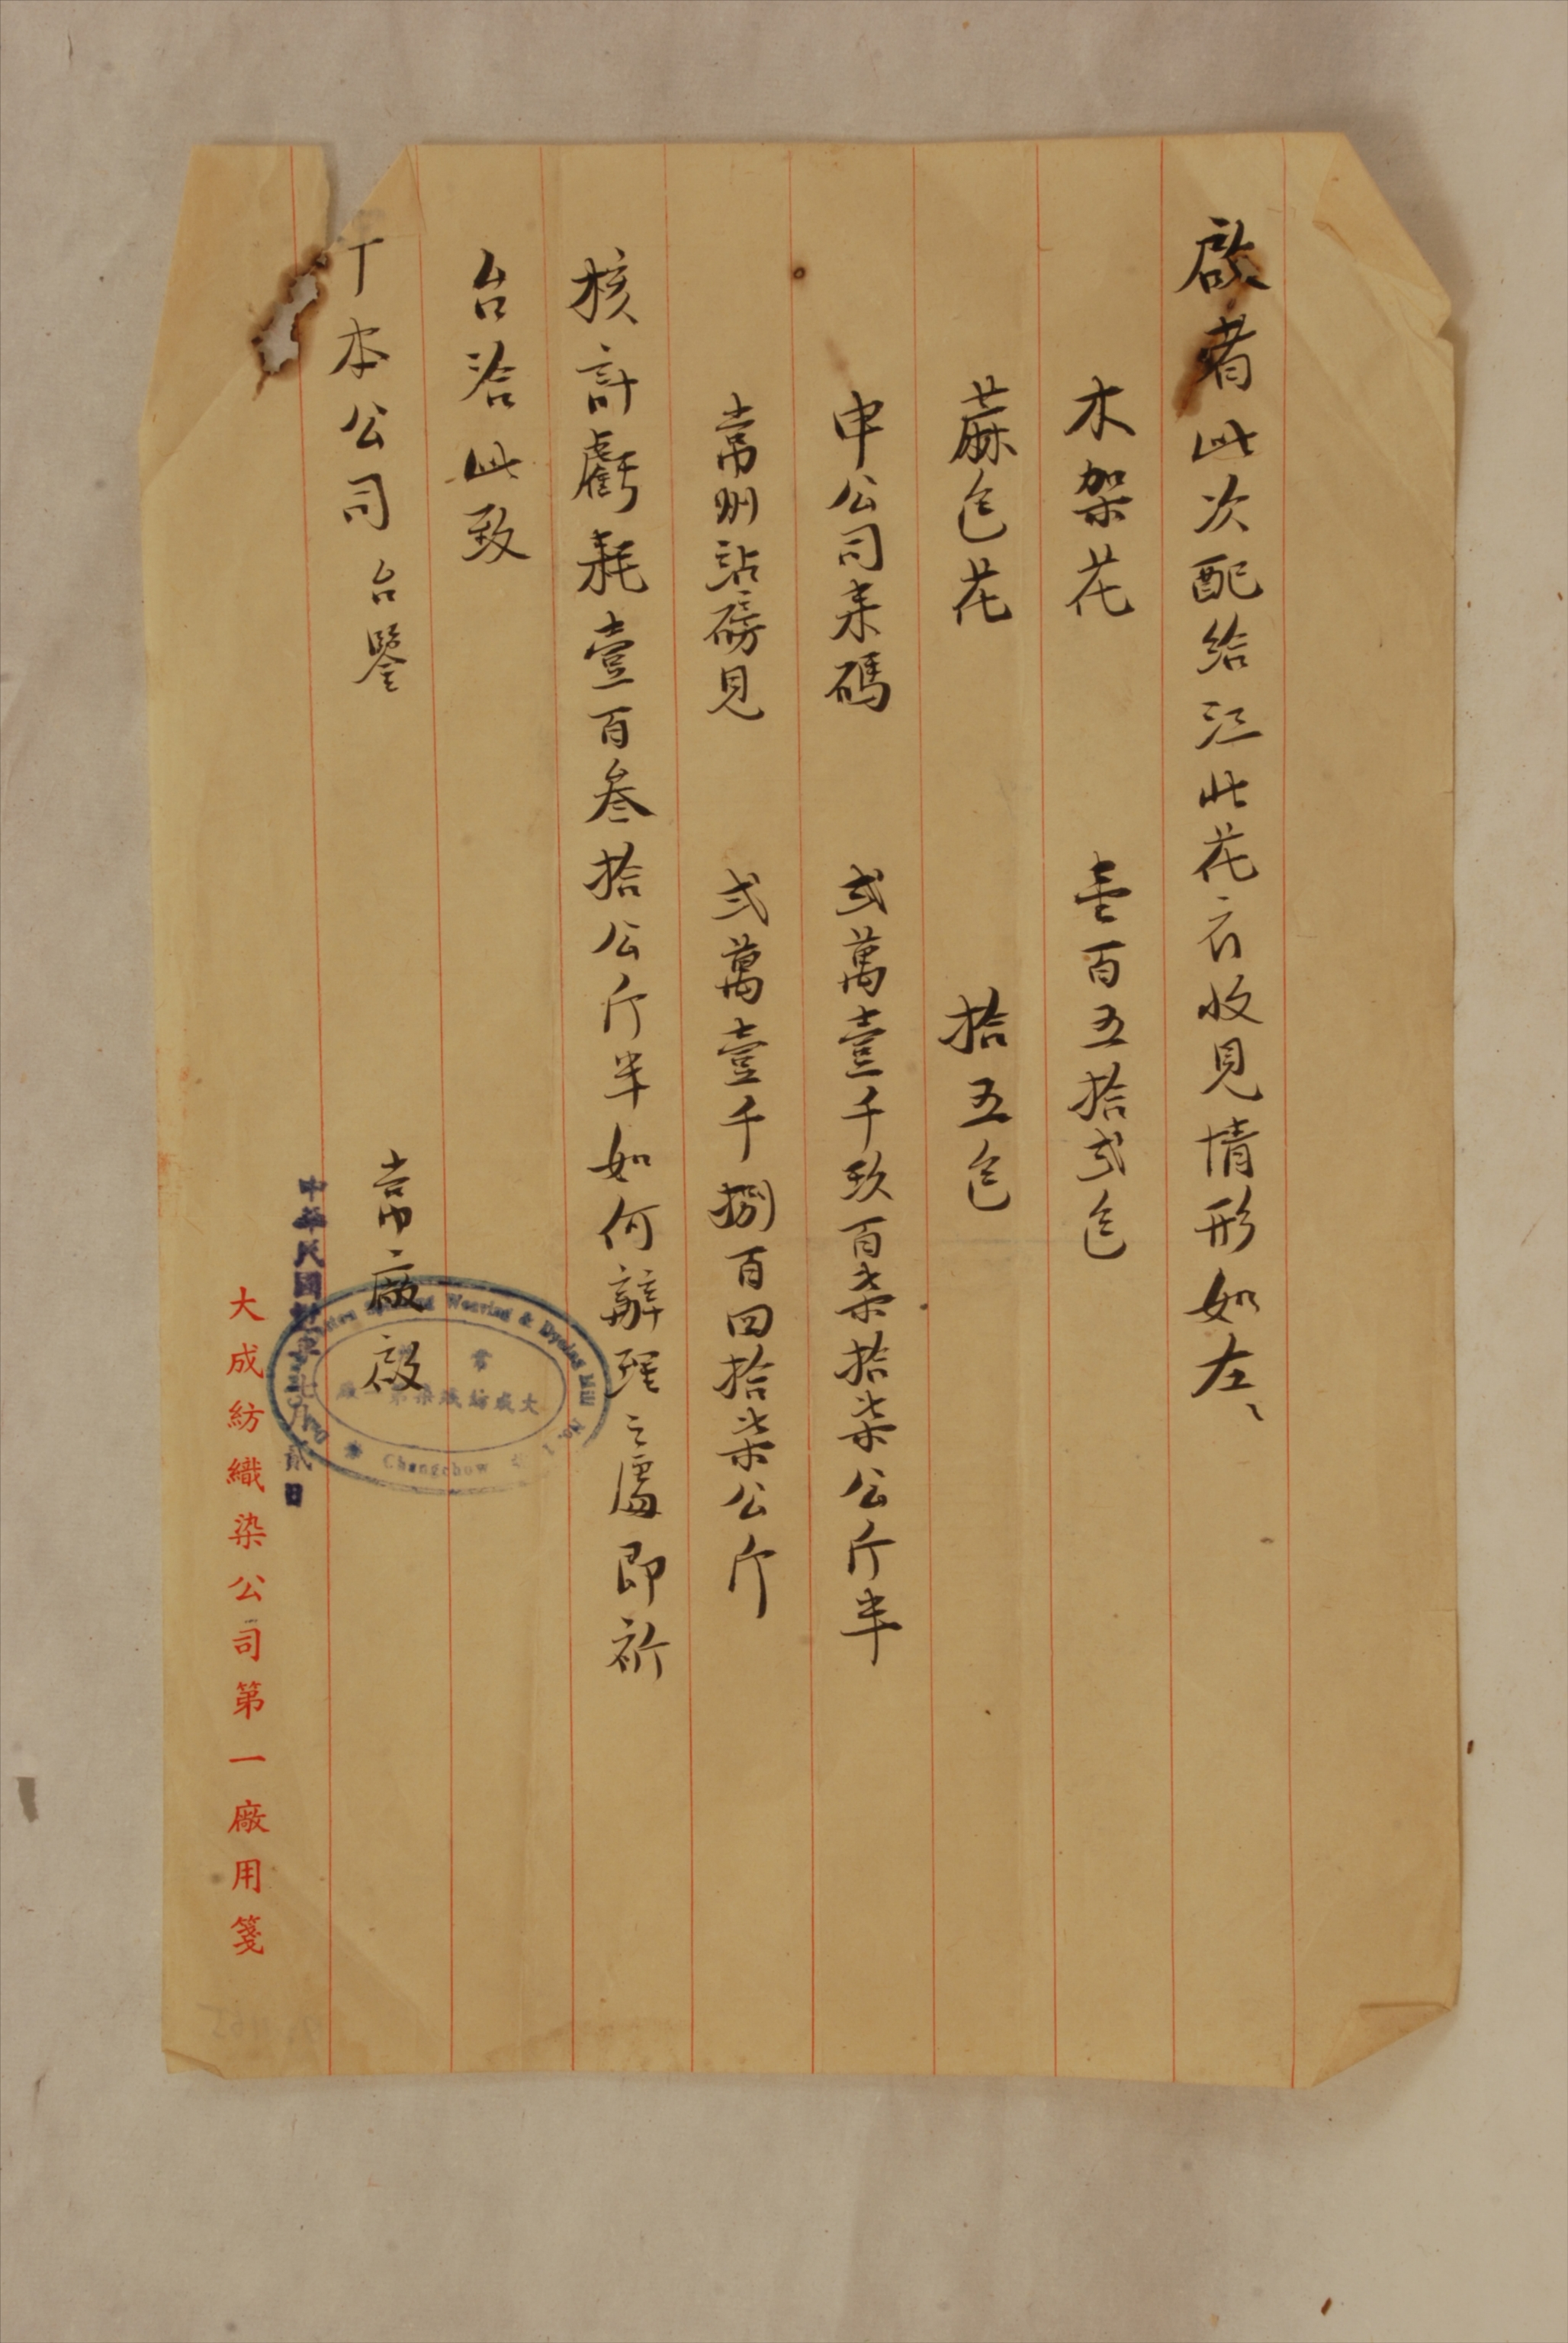 啟者此次配給江北花衣收見情形如左、
木架花　壹百五拾弍包
蔴包花　拾五包
申公司來碼　弍萬壹千玖百柒拾柒公斤半
常州站磅見　弍萬壹千捌百四拾柒公斤
核計虧耗壹百叁拾公斤半如何辦理之處即祈
台洽此致
丁本公司台鑒
常廠啟
中華民國 年七月貳日
大成紡織染公司第一廠用箋
Spinning Weaving & Dyeing Mill No. 1
常
大成紡織染第一廠
Changchow